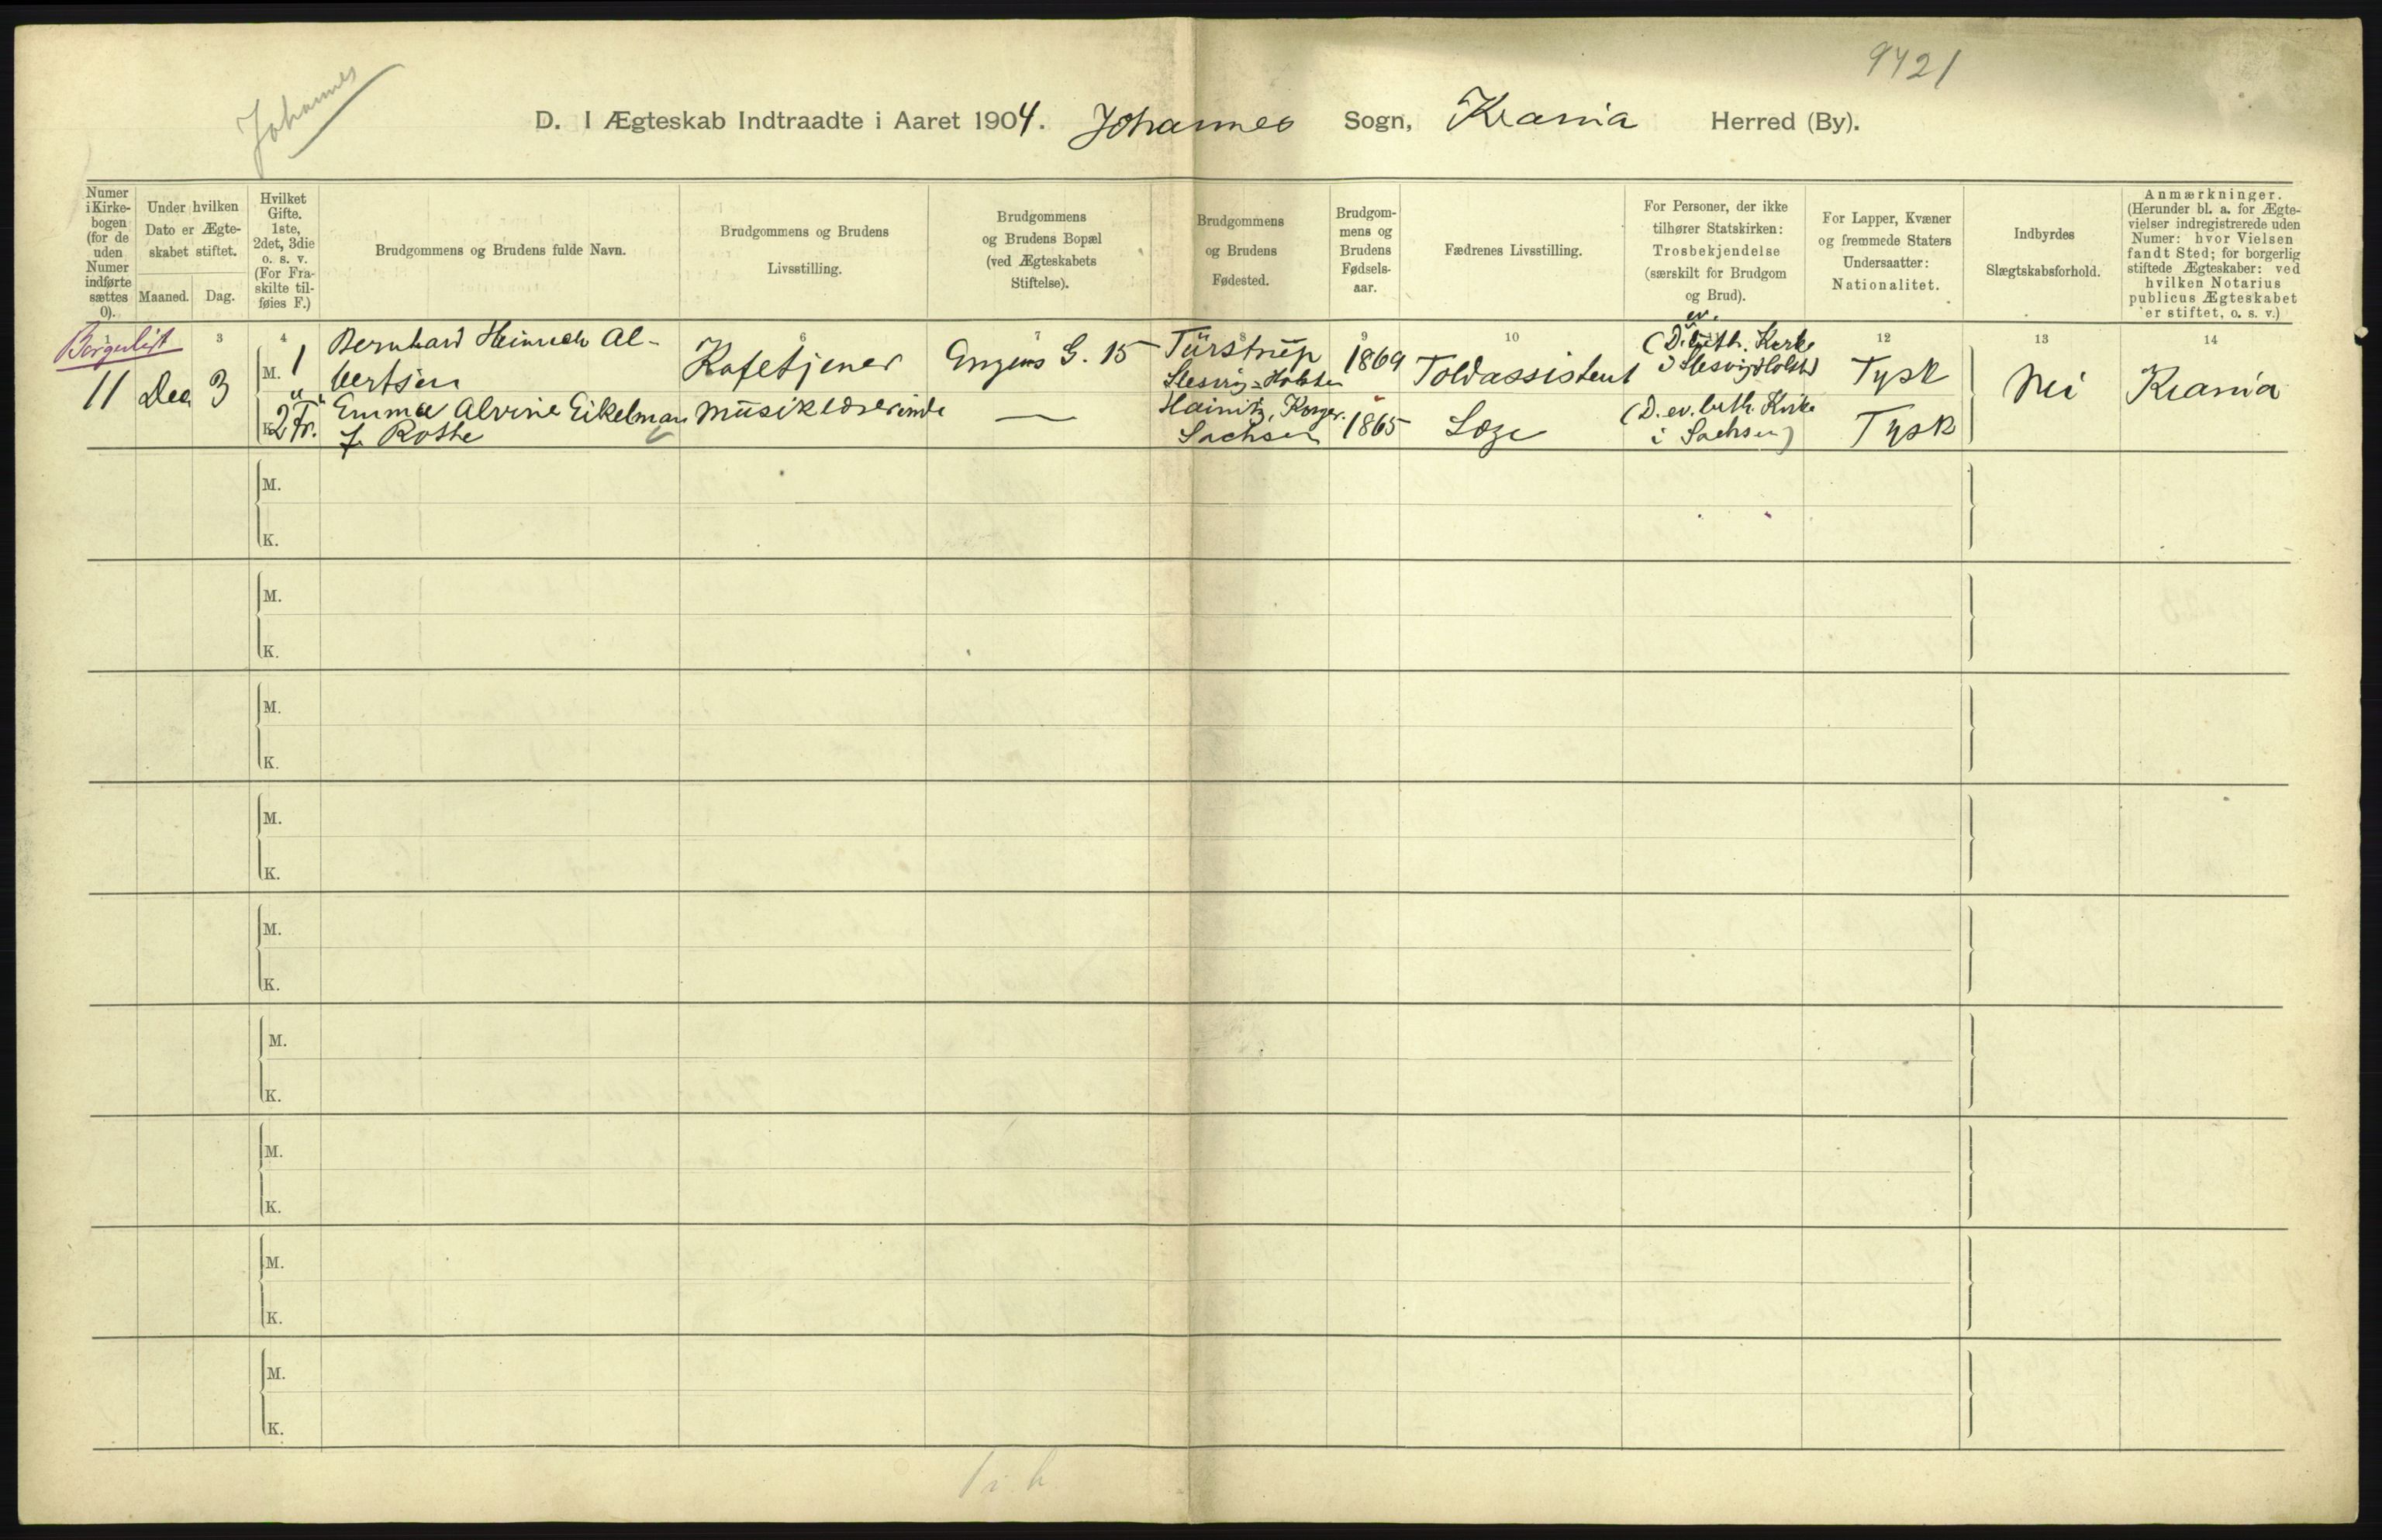 Johannes
9421
D. I Ægteskab Indtraadte i Aaret 1904. Johannes Sogn, Krania Herred (By).
Numer
i Kirke-
bogen
(for de
uden
Numer
indførte
sættes
0).
Under hvilken
Dato er Ægte-
skabet stiftet.
Maaned.
Dag.
Hvilket
Gifte.
1ste,
2det, 3die
o. s. v.
(For Fra-
skilte til-
føies F.)
Brudgommens og Brudens fulde Navn.
Brudgommens og Brudens
Livsstilling.
Brudgommens
og Brudens Bopæl
(ved Ægteskabets
Stiftelse).
Brudgommens
og Brudens
Fødested.
Brudgom-
mens og
Brudens
Fødsels-
aar.
Fædrenes Livsstilling.
For Personer, der ikke
tilhører Statskirken:
Trosbekjendelse
(særskilt for Brudgom
og Brud).
For Lapper, Kvæner
og fremmede Staters
Undersaatter:
Nationalitet.
Indbyrdes
Slægtskabsforhold.
Anmærkninger.
(Herunder bl. a. for Ægte-
vielser indregistrerede uden
Numer: hvor Vielsen
fandt Sted; for borgerlig
stiftede Ægteskaber: ved
hvilken Notarius
publicus Ægteskabet
er stiftet, o. s. v.)
3 4 6 7 8 9 10 12 13 14
Borgerligt
11 Dec 3
M. 1
Bernhard Heinrich Al-
bertsen
Kafetjener
Engens G. 15
Türstrup
Slesvig-Holsten
1869
Toldassistent
ev.
(D. luth. Kirke
i Slesvig Holst)
Tysk
Nei
Krania
K. 2 Fr.
Emma Alvine Eikelman
f. Rothe
Musiklærerinde
—
Hainitz, Konger.
Sachsen
1865
Læge
(D. ev. luth. Kirke
i Sachsen)
Tysk
M.
K.
M.
K.
M.
K.
M.
K.
M.
K.
M.
K.
M.
K.
M.
K.
M.
K.